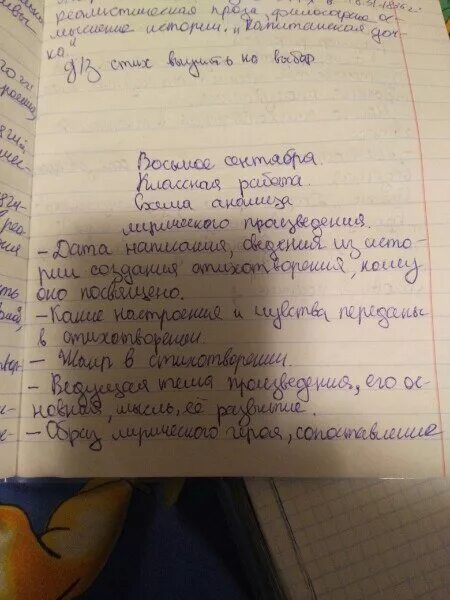 реалистическая проза, философское ос-
мысление истории. "Капитанская доч-
ка"
Д/З стих выучить на выбор
Восьмое сентября.
Классная работа.
Схема анализа
лирического произведения.
- Дата написания, сведения из исто-
рии создания стихотворения, кому
оно посвящено.
- Какие настроения и чувства переданы
в стихотворении.
- Жанр в стихотворении.
- Ведущая тема произведения, его ос-
новная, мысль, её развитие.
- Образ лирического героя, сопоставление